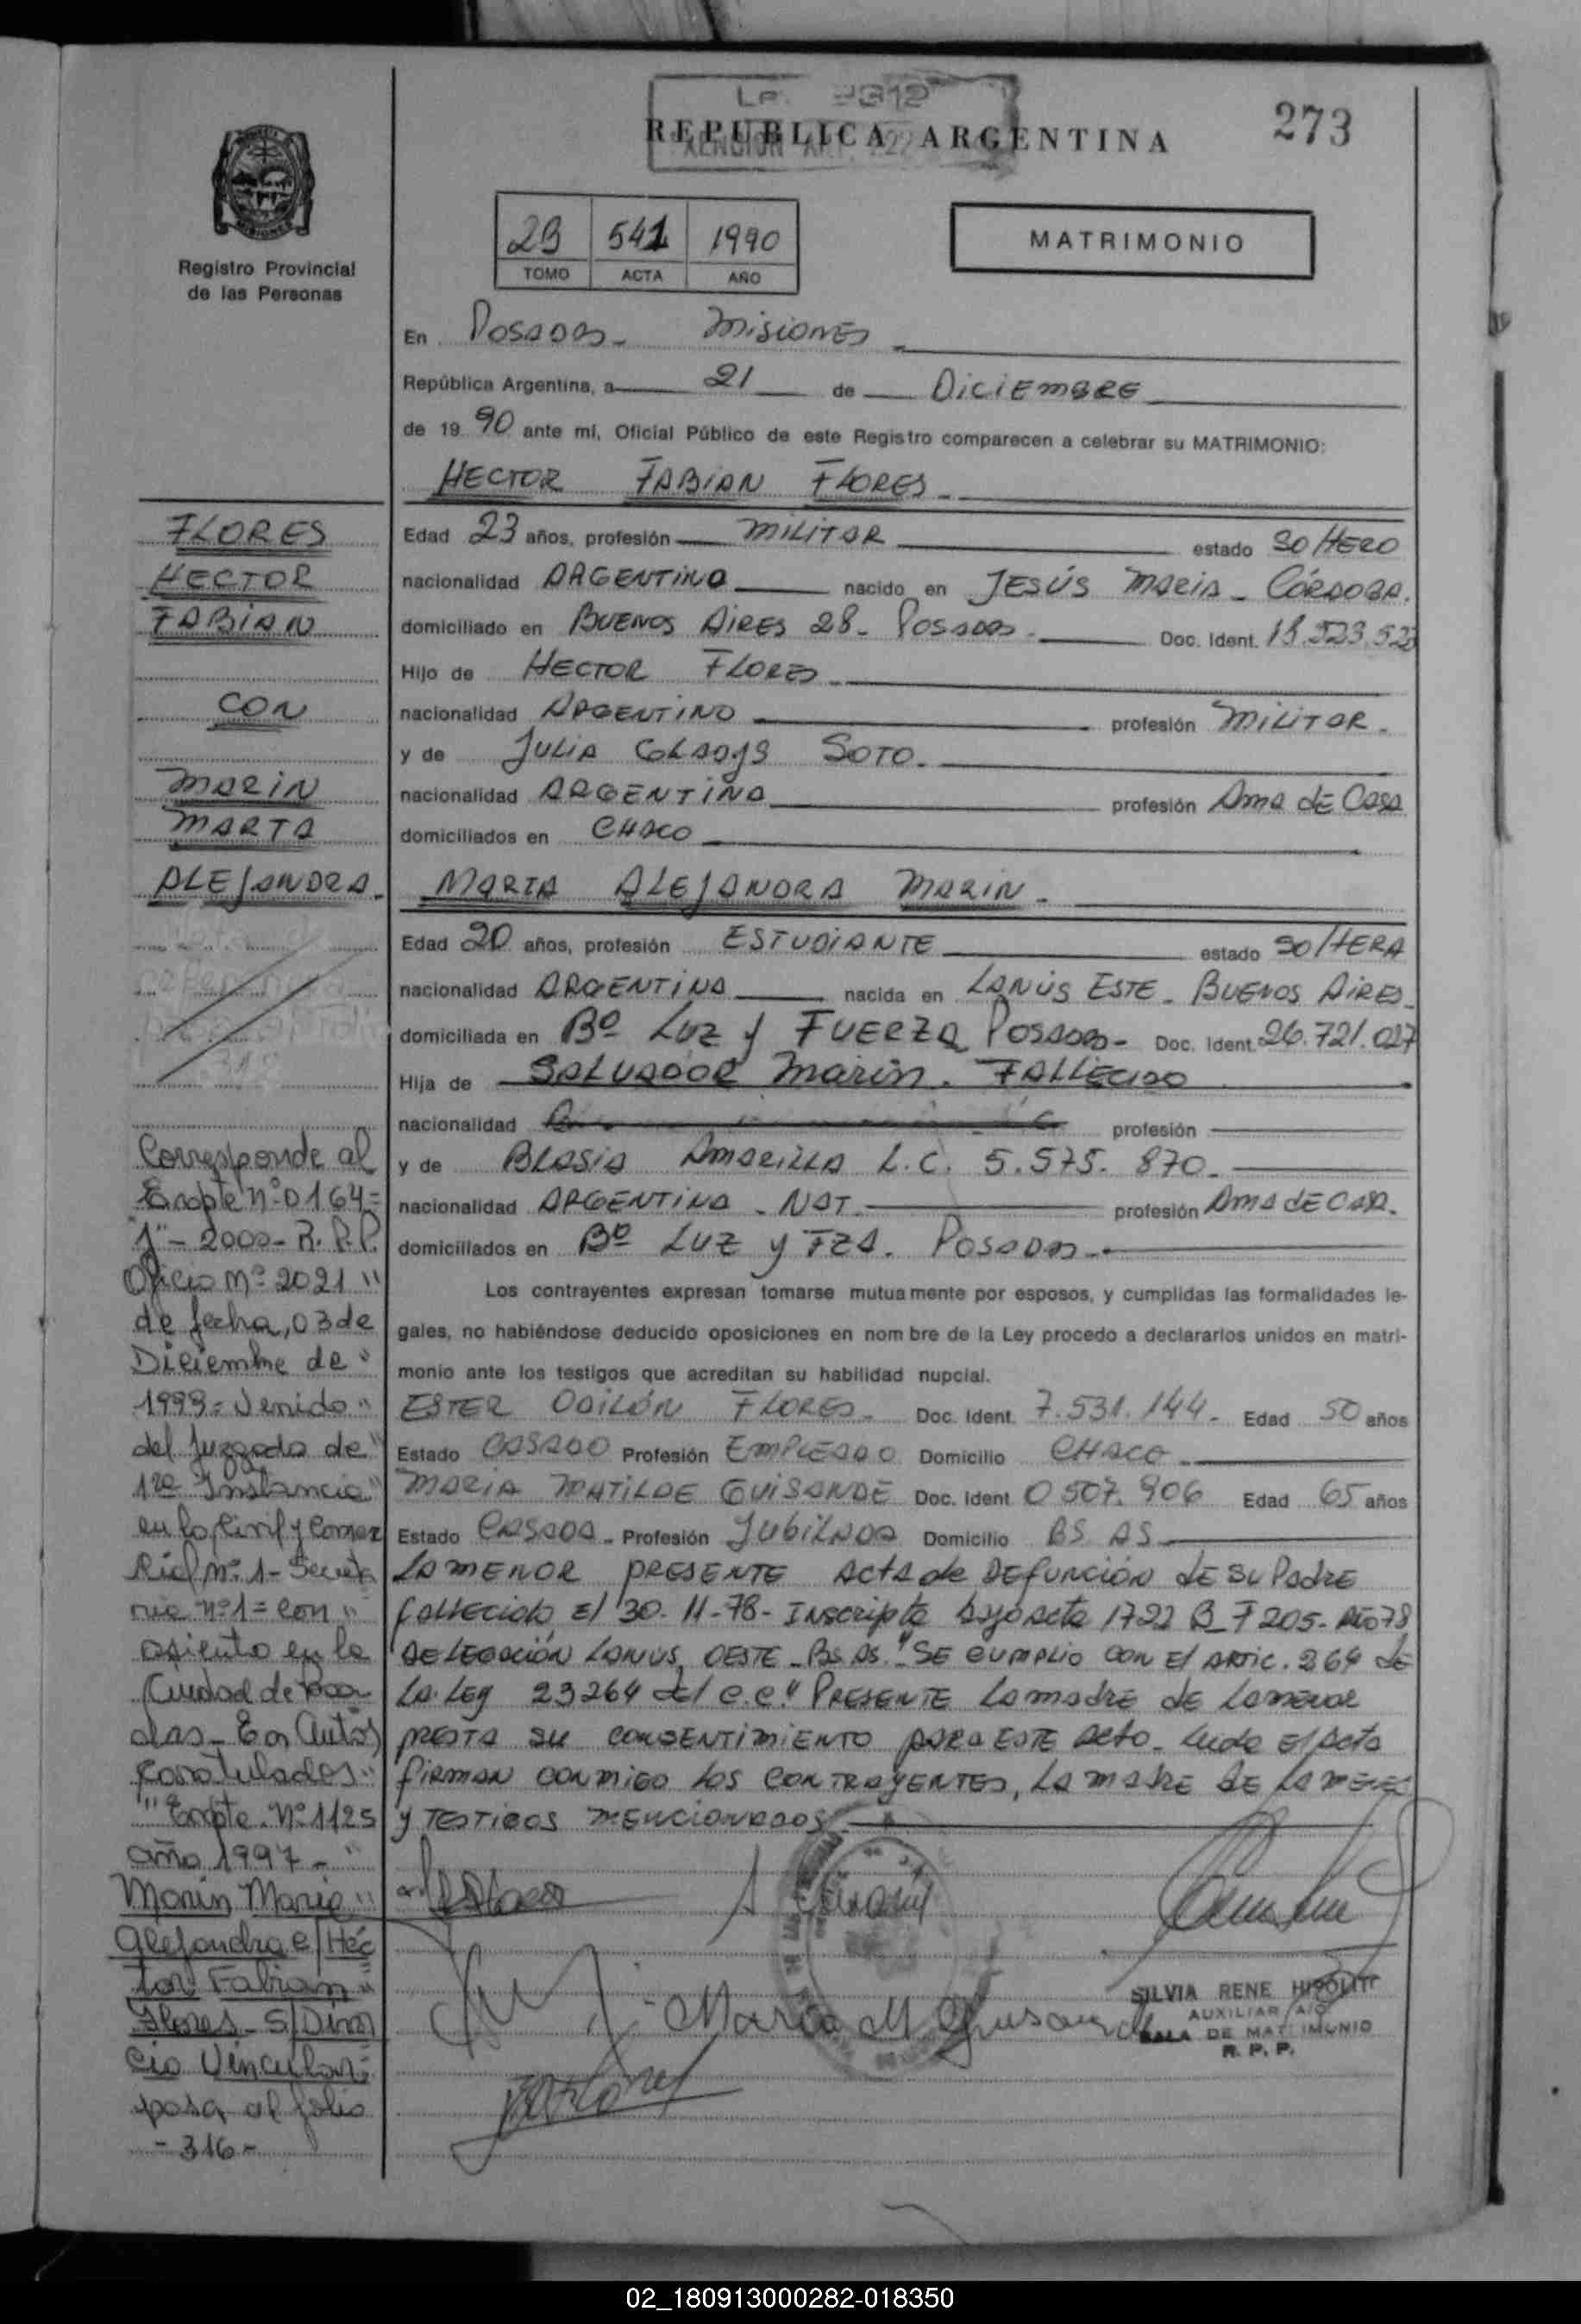 273
REPUBLICA ARGENTINA
Registro Provincial
de las Personas
541 1990
TOMO ACTA AÑO
MATRIMONIO
En Posadas - Misiones -
República Argentina, a 21 de Diciembre
de 19 90 ante mí, Oficial Público de este Registro comparecen a celebrar su MATRIMONIO:
HECTOR FABIAN FLORES -
Edad 23 años, profesión Militar estado Soltero
nacionalidad ARGENTINO nacido en JESÚS MARIA - CÓRDOBA.
domiciliado en BUENOS AIRES 28 - Posadas - Doc. Ident.
Hijo de HECTOR FLORES -
nacionalidad ARGENTINO profesión MILITAR -
y de JULIA GLADYS SOTO -
nacionalidad ARGENTINA profesión Ama de Casa
domiciliados en CHACO
MARTA ALEJANDRA MARIN -
Edad 20 años, profesión ESTUDIANTE estado SOLTERA
nacionalidad ARGENTINA nacida en LANÚS ESTE - BUENOS AIRES -
domiciliada en Bº LUZ y FUERZA Posadas - Doc. Ident. 26.721.027
Hija de SALVADOR Marin. FALLECIDO
nacionalidad profesión
y de BLASIA AMARILLA L.C. 5.575.870 -
nacionalidad ARGENTINA - NAT. profesión AMA DE CASA.
domiciliados en Bº LUZ y FZA. Posadas -
Los contrayentes expresan tomarse mutuamente por esposos, y cumplidas las formalidades le-
gales, no habiéndose deducido oposiciones en nombre de la Ley procedo a declararlos unidos en matri-
monio ante los testigos que acreditan su habilidad nupcial.
ESTER ODILÓN FLORES - Doc. Ident. 7.531.144 - Edad 50 años
Estado CASADO Profesión EMPLEADO Domicilio CHACO
MARIA MATILDE GUISANDE Doc. Ident 0507.906 Edad 65 años
Estado CASADA - Profesión JUBILADA Domicilio BS. AS.
LA MENOR PRESENTE Acta de DEFUNCIÓN DE SU PADRE
fallecido El 30-11-78 - Inscripta bajo acta 1722 B F 205 - Año 78
DELEGACIÓN LANUS, OESTE - Bs. As. "SE CUMPLIO CON El ARTIC. 264 de
La Ley 23264 del C.C." PRESENTE la madre de la menor
PRESTA SU CONSENTIMIENTO PARA ESTE Acto - Leida El Acta
FIRMAN CONMIGO LOS CONTRAYENTES, LA MADRE DE LA MENOR
y TESTIGOS MENCIONADOS
FLORES
HECTOR
FABIAN
CON
MARIN
MARTA
ALEJANDRA -
Corresponde al
Expte nº 0164=
"J" - 2000 - R.P.P.
Oficio Nº 2021 "
de fecha, 03 de
Diciembre de "
1999 = Venido "
del Juzgado de "
1ra Instancia "
en lo Civil y Comer
cial Nº 1 - Secreta
ria Nº 1 = con "
asiento en la
Ciudad de Posa
das - En Autos
Caratulados "
"Expte. Nº 1125
año 1997 - "
Marin Maria "
Alejandra c/ Hec
tor Fabian "
Flores - S/ Divor
cio Vincular =
pasa al folio
- 316 -
Maria M Guisande
SILVIA RENE HIPOLITT
AUXILIAR A/C
SALA DE MATRIMONIO
R. P. P.
02_180913000282-018350